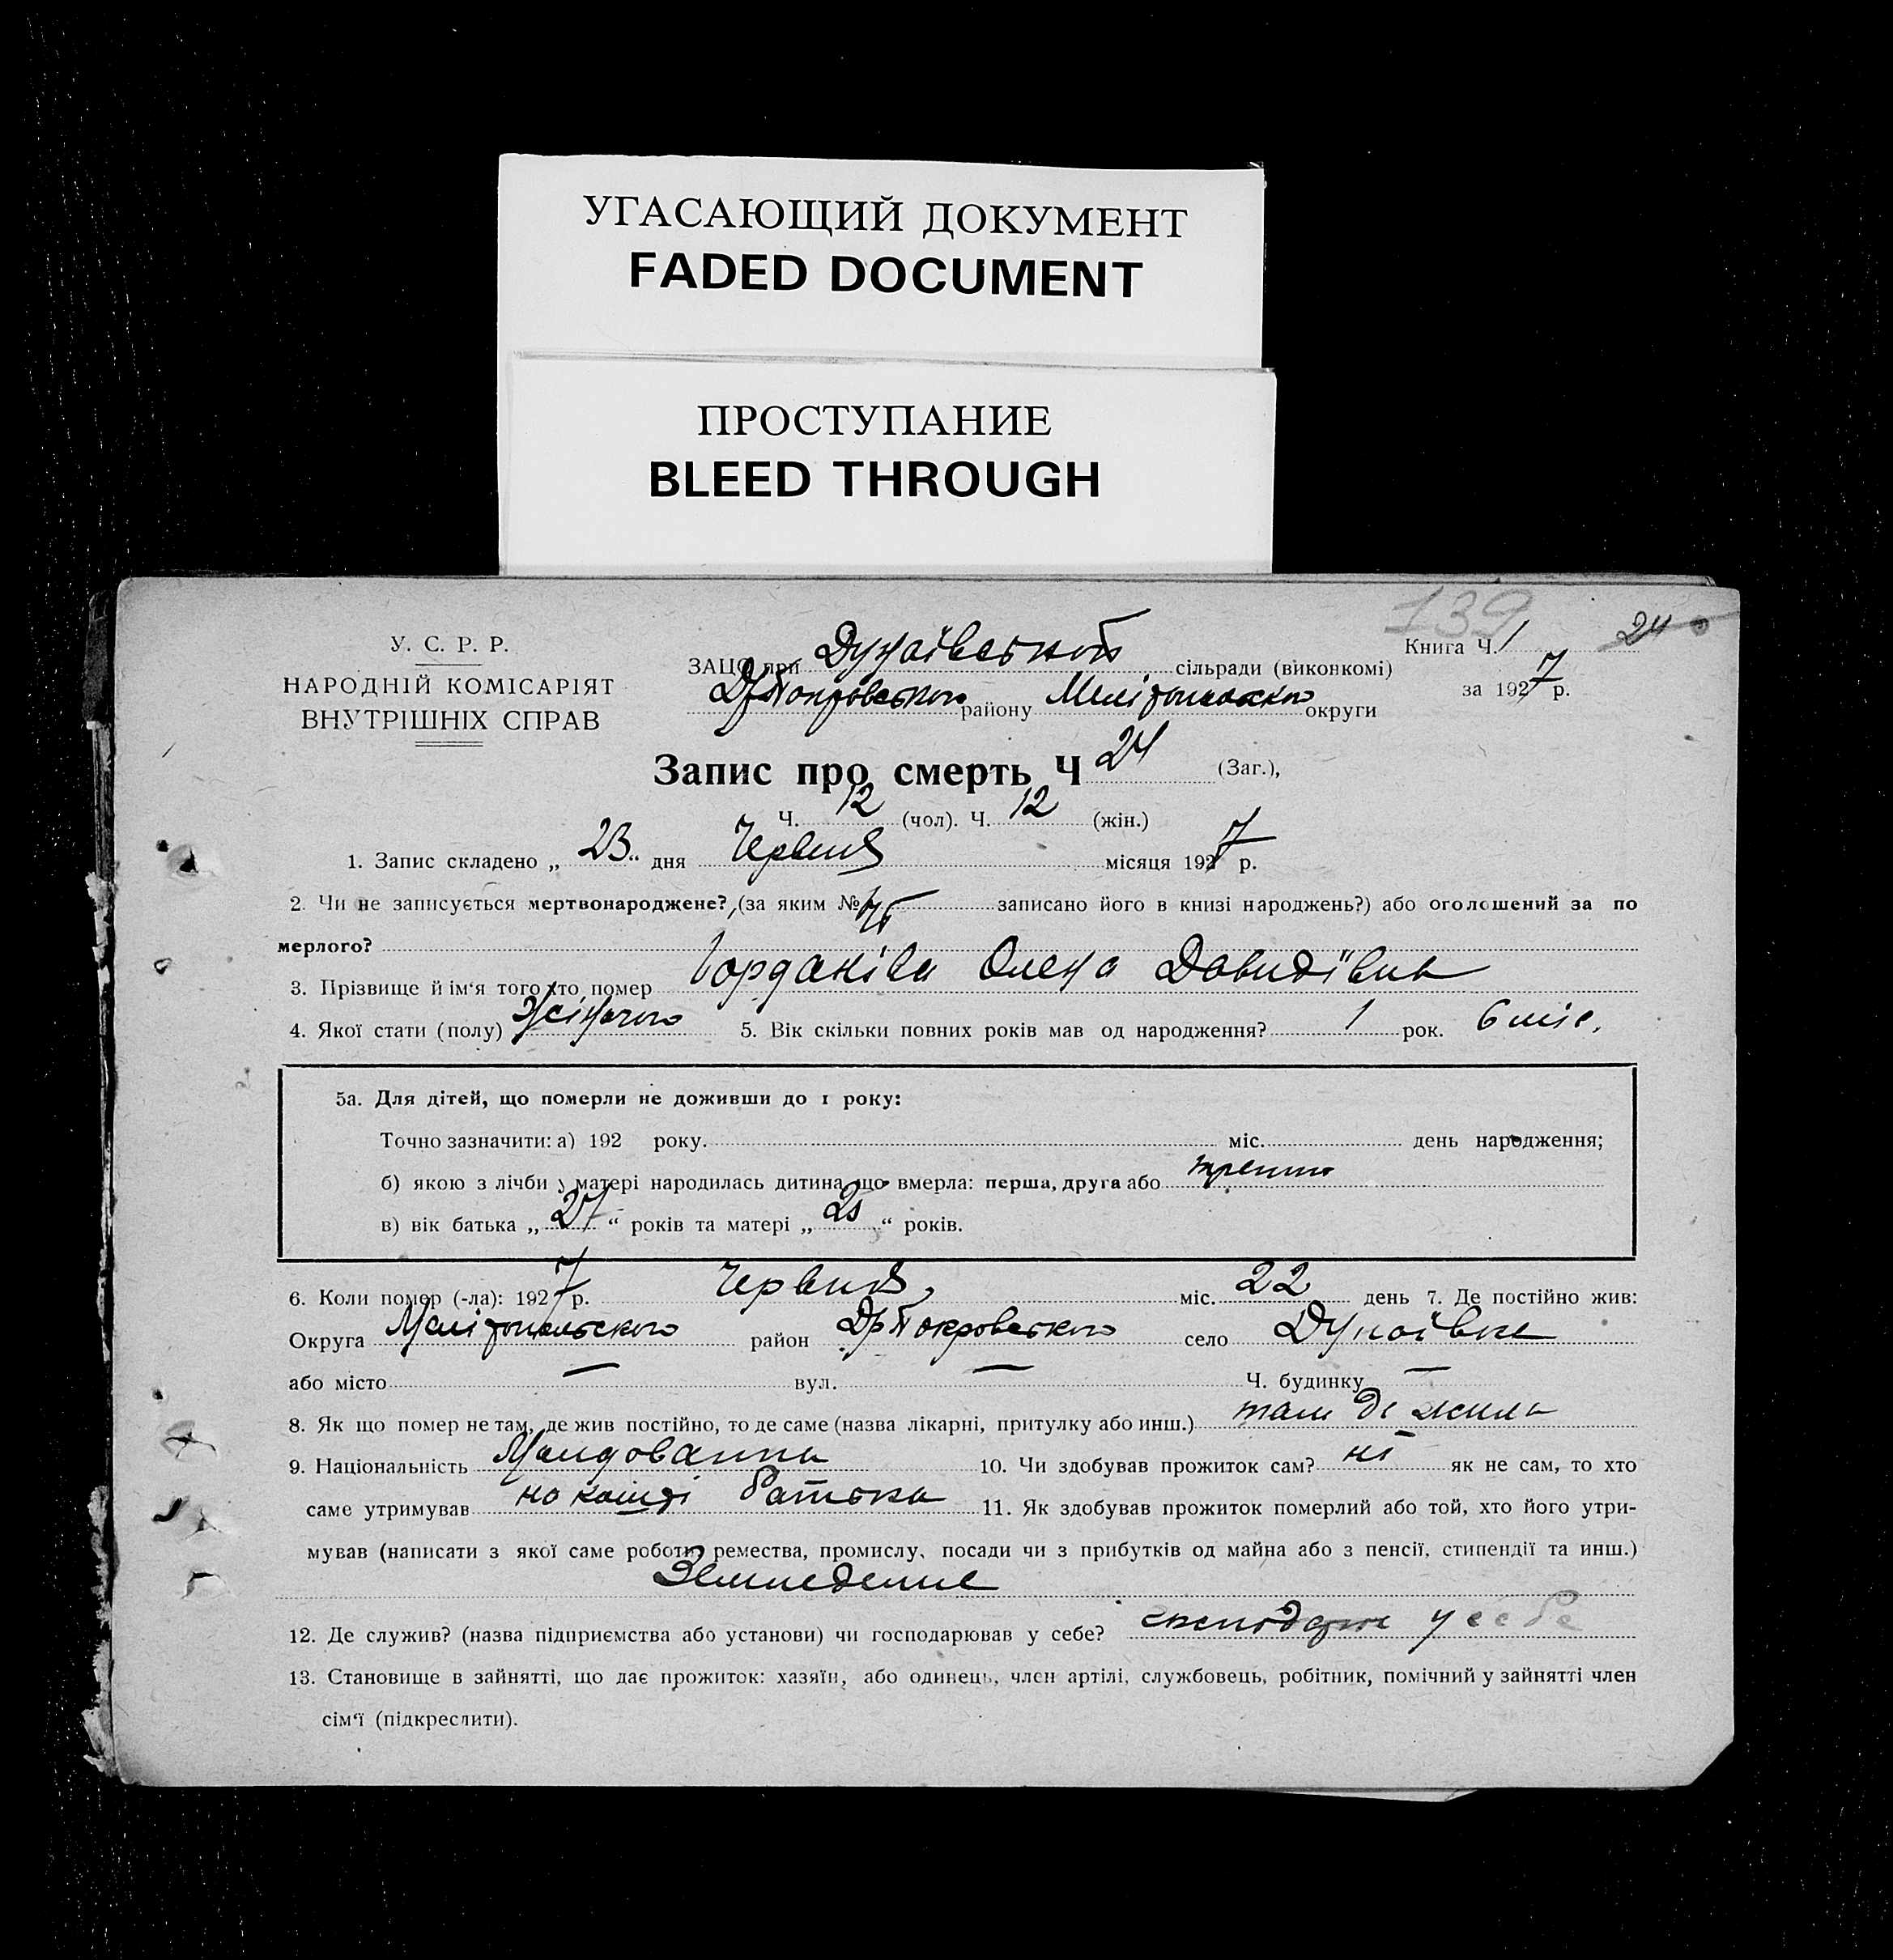 УГАСАЮЩИЙ ДОКУМЕНТ
FADED DOCUMENT
ПРОСТУПАНИЕ
BLEED THROUGH
139 24
У. С. Р. Р.
НАРОДНІЙ КОМІСАРІЯТ
ВНУТРІШНІХ СПРАВ
Книга Ч. 1
за 1927 р.
ЗАЦС при Дунаївській сільради (виконкомі)
Др Покровського району Мелітопольсько округи
Запис про смерть Ч 24 (Заг.),
Ч. 12 (чол). Ч. 12 (жін.)
1. Запис складено „ 23 “ дня Червня місяця 1927 р.
2. Чи не записується мертвонароджене? (за яким № записано його в книзі народжень?) або оголошений за по
мерлого?
3. Прізвище й ім‘я того хто помер Горданіва Олена Давидівна
4. Якої стати (полу) Жіночого 5. Вік скільки повних років мав од народження? 1 рок. 6 міс.
5а. Для дітей, що померли не доживши до 1 року:
Точно зазначити: а) 192 року. міс. день народження;
б) якою з лічби у матері народилась дитина що вмерла: перша, друга або
в) вік батька „ 27 “ років та матері „ 25 “ років.
6. Коли помер (-ла): 1927 р. Червня міс. 22 день 7. Де постійно жив:
Округа Мелітопольского район Др Покровського село Дунаївка
або місто — вул. — Ч. будинку —
8. Як що помер не там, де жив постійно, то де саме (назва лікарні, притулку або инш.) там де жила
9. Національність Молдованка 10. Чи здобував прожиток сам? ні як не сам, то хто
саме утримував на кошті батька 11. Як здобував прожиток померлий або той, хто його утри-
мував (написати з якої саме роботи, ремества, промислу, посади чи з прибутків од майна або з пенсії, стипендії та инш.)
Земледелие
12. Де служив? (назва підприємства або установи) чи господарював у себе? у себе
13. Становище в зайнятті, що дає прожиток: хазяїн, або одинець, член артілі, службовець, робітник, помічний у зайнятті член
сім‘ї (підкреслити).